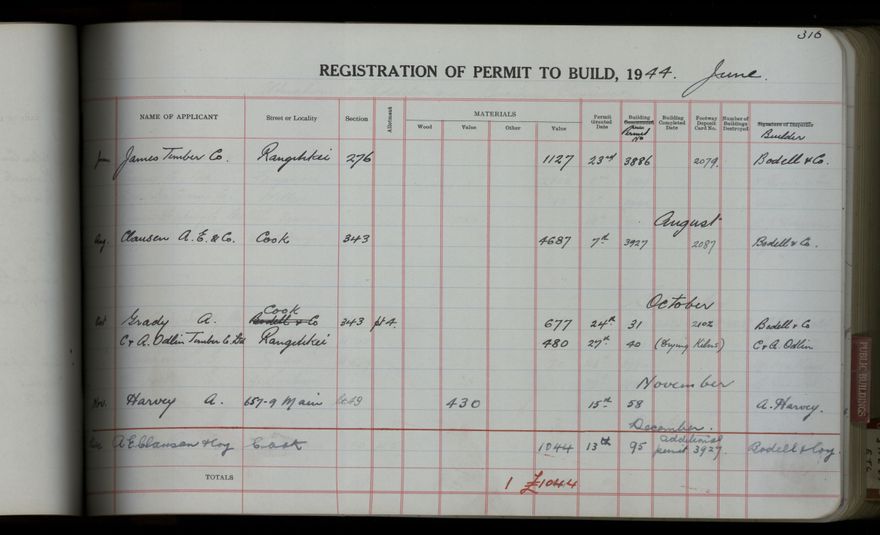 316
REGISTRATION OF PERMIT TO BUILD, 1944. June.
NAME OF APPLICANT Street or Locality Section Allotment MATERIALS Wood Value Other Value Permit Granted Date Building Permit No Building Completed Date Footway Deposit Card No. Number of Buildings Destroyed Signature of Inspector Builder
James Timber Co. Rangitikei 276 1127 23rd 3886 2079. Bodell & Co.
August
Aug. Clausen A. E. & Co. Cook 343 4687 7th 3927 2087 Bodell & Co.
October
Cook
Oct Grady A. Bodell & Co 343 pt 4. 677 24th 31 2102 Bodell & Co
C & A. Odlin Timber Co Ltd Rangitikei 480 27th 40 (Drying Kilns) C & A. Odlin
November
Nov. Harvey A. 657-9 Main 430 15th 58 A. Harvey.
December.
A E Clausen & Coy Cook 1044 13th 95 additional permit 3927. Bodell & Coy.
TOTALS 1 £1044
PUBLIC BUILDINGS